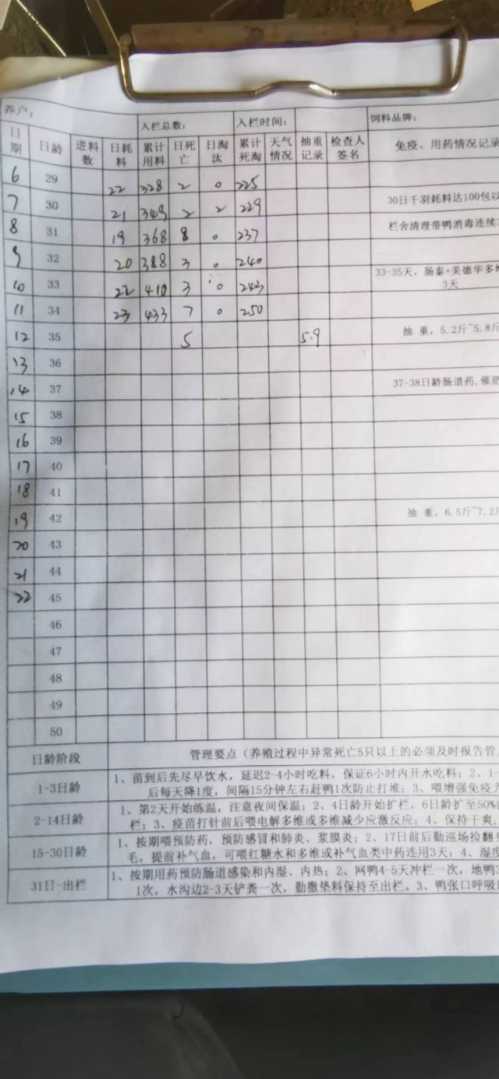 养户： 入栏总数： 入栏时间： 饲料品牌：
日期 日龄 进料数 日耗料 累计用料 日死亡 日淘汰 累计死淘 天气情况 抽重记录 检查人签名 免疫、用药情况记录
6 29 22 328 2 0 225
7 30 21 349 2 2 229 30日千羽耗料达100包以
8 31 19 368 8 0 237 栏舍清理带鸭消毒连续
9 32 20 388 3 0 240
10 33 22 410 3 0 243 33-35天，肠泰+美德华多维
3天
11 34 23 433 7 0 250
12 35 5 5.9 抽 重，5.2斤~5.8斤
13 36
14 37 37-38日龄肠道药，催肥
15 38
16 39
17 40
18 41
19 42 抽 重，6.5斤~7.2斤
20 43
21 44
22 45
46
47
48
49
50
日龄阶段 管理要点（养殖过程中异常死亡5只以上的必须及时报告管
1-3日龄 1、苗到后先尽早饮水，延迟2-4小时吃料，保证6小时内开水吃料；2、1-
后每天降1度，间隔15分钟左右赶鸭1次防止打堆；3、喂增强免疫力
2-14日龄 1、第2天开始炼温，注意夜间保温；2、4日龄开始扩栏，6日龄扩至50%
栏；3、疫苗打针前后喂电解多维或多维减少应激反应；4、保持干爽，
15-30日龄 1、按期喂预防药，预防感冒和肺炎、浆膜炎；2、17日前后勤巡场捡翻
毛，提前补气血，可喂红糖水和多维或补气血类中药连用3天；4、湿度
31日-出栏 1、按期用药预防肠道感染和内湿、内热；2、网鸭4-5天冲栏一次，地鸭
1次，水沟边2-3天铲粪一次，勤撒垫料保持至出栏。3、鸭张口呼吸